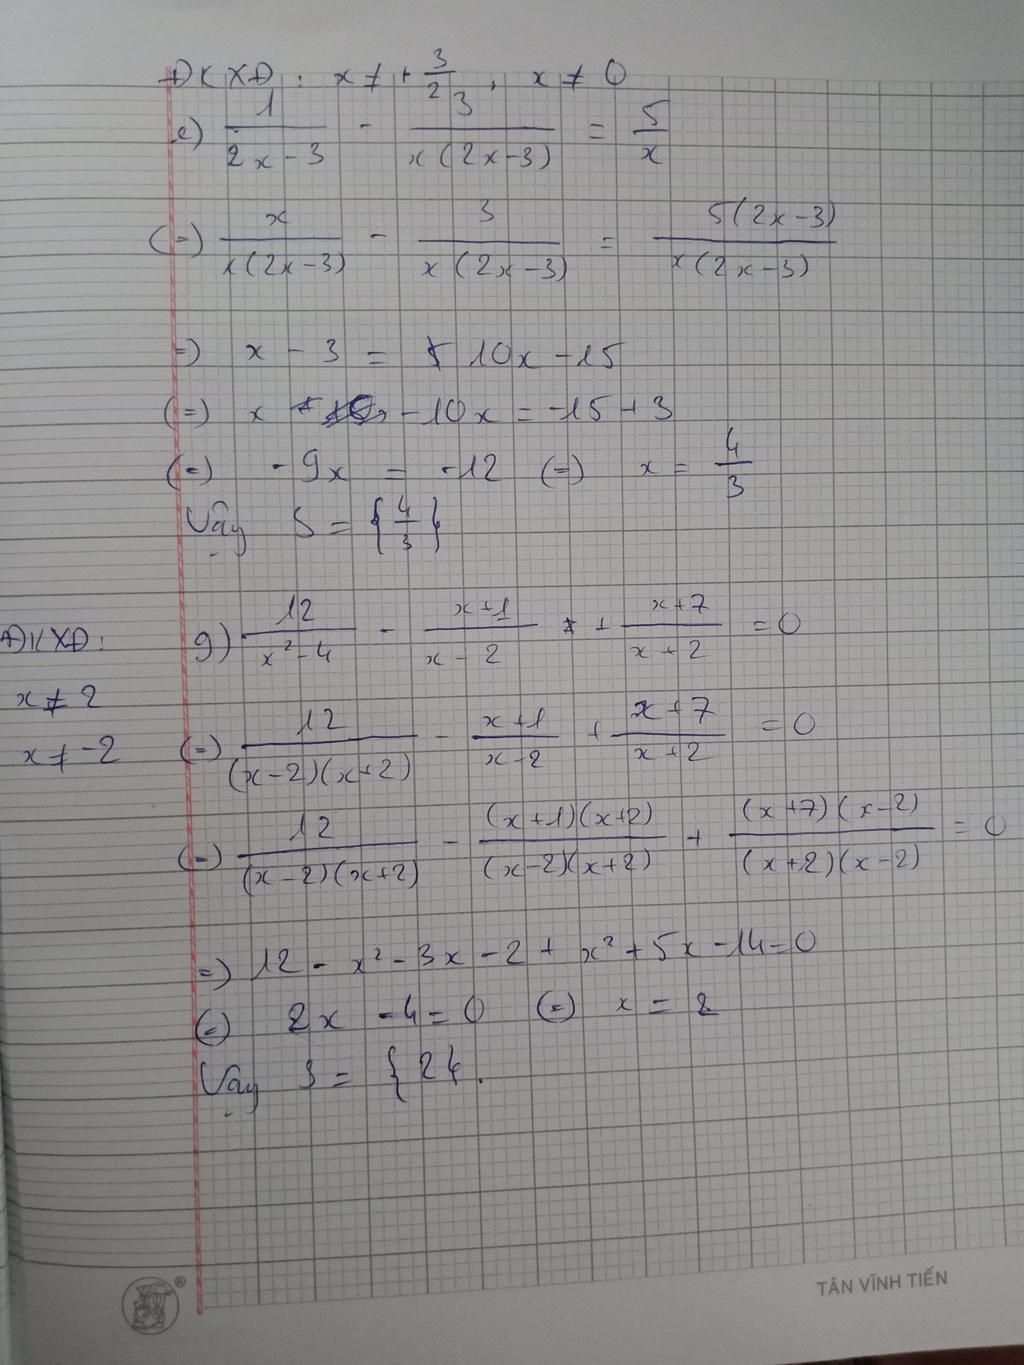 ĐKXĐ: x ≠ + 3/2, x ≠ 0
e) 1/(2x-3) - 3/(x(2x-3)) = 5/x
(=) x/(x(2x-3)) - 3/(x(2x-3)) = 5(2x-3)/(x(2x-3))
=) x - 3 = 10x - 15
(=) x - 10x = -15 + 3
(=) -9x = -12 (=) x = 4/3
Vậy S = {4/3}
ĐKXĐ:
x ≠ 2
x ≠ -2
g) 12/(x²-4) - (x+1)/(x-2) + (x+7)/(x+2) = 0
(=) 12/((x-2)(x+2)) - (x+1)/(x-2) + (x+7)/(x+2) = 0
(=) 12/((x-2)(x+2)) - (x+1)(x+2)/((x-2)(x+2)) + (x+7)(x-2)/((x+2)(x-2)) = 0
=) 12 - x² - 3x - 2 + x² + 5x - 14 = 0
(=) 2x - 4 = 0 (=) x = 2
Vậy S = {2}.
TÂN VĨNH TIẾN